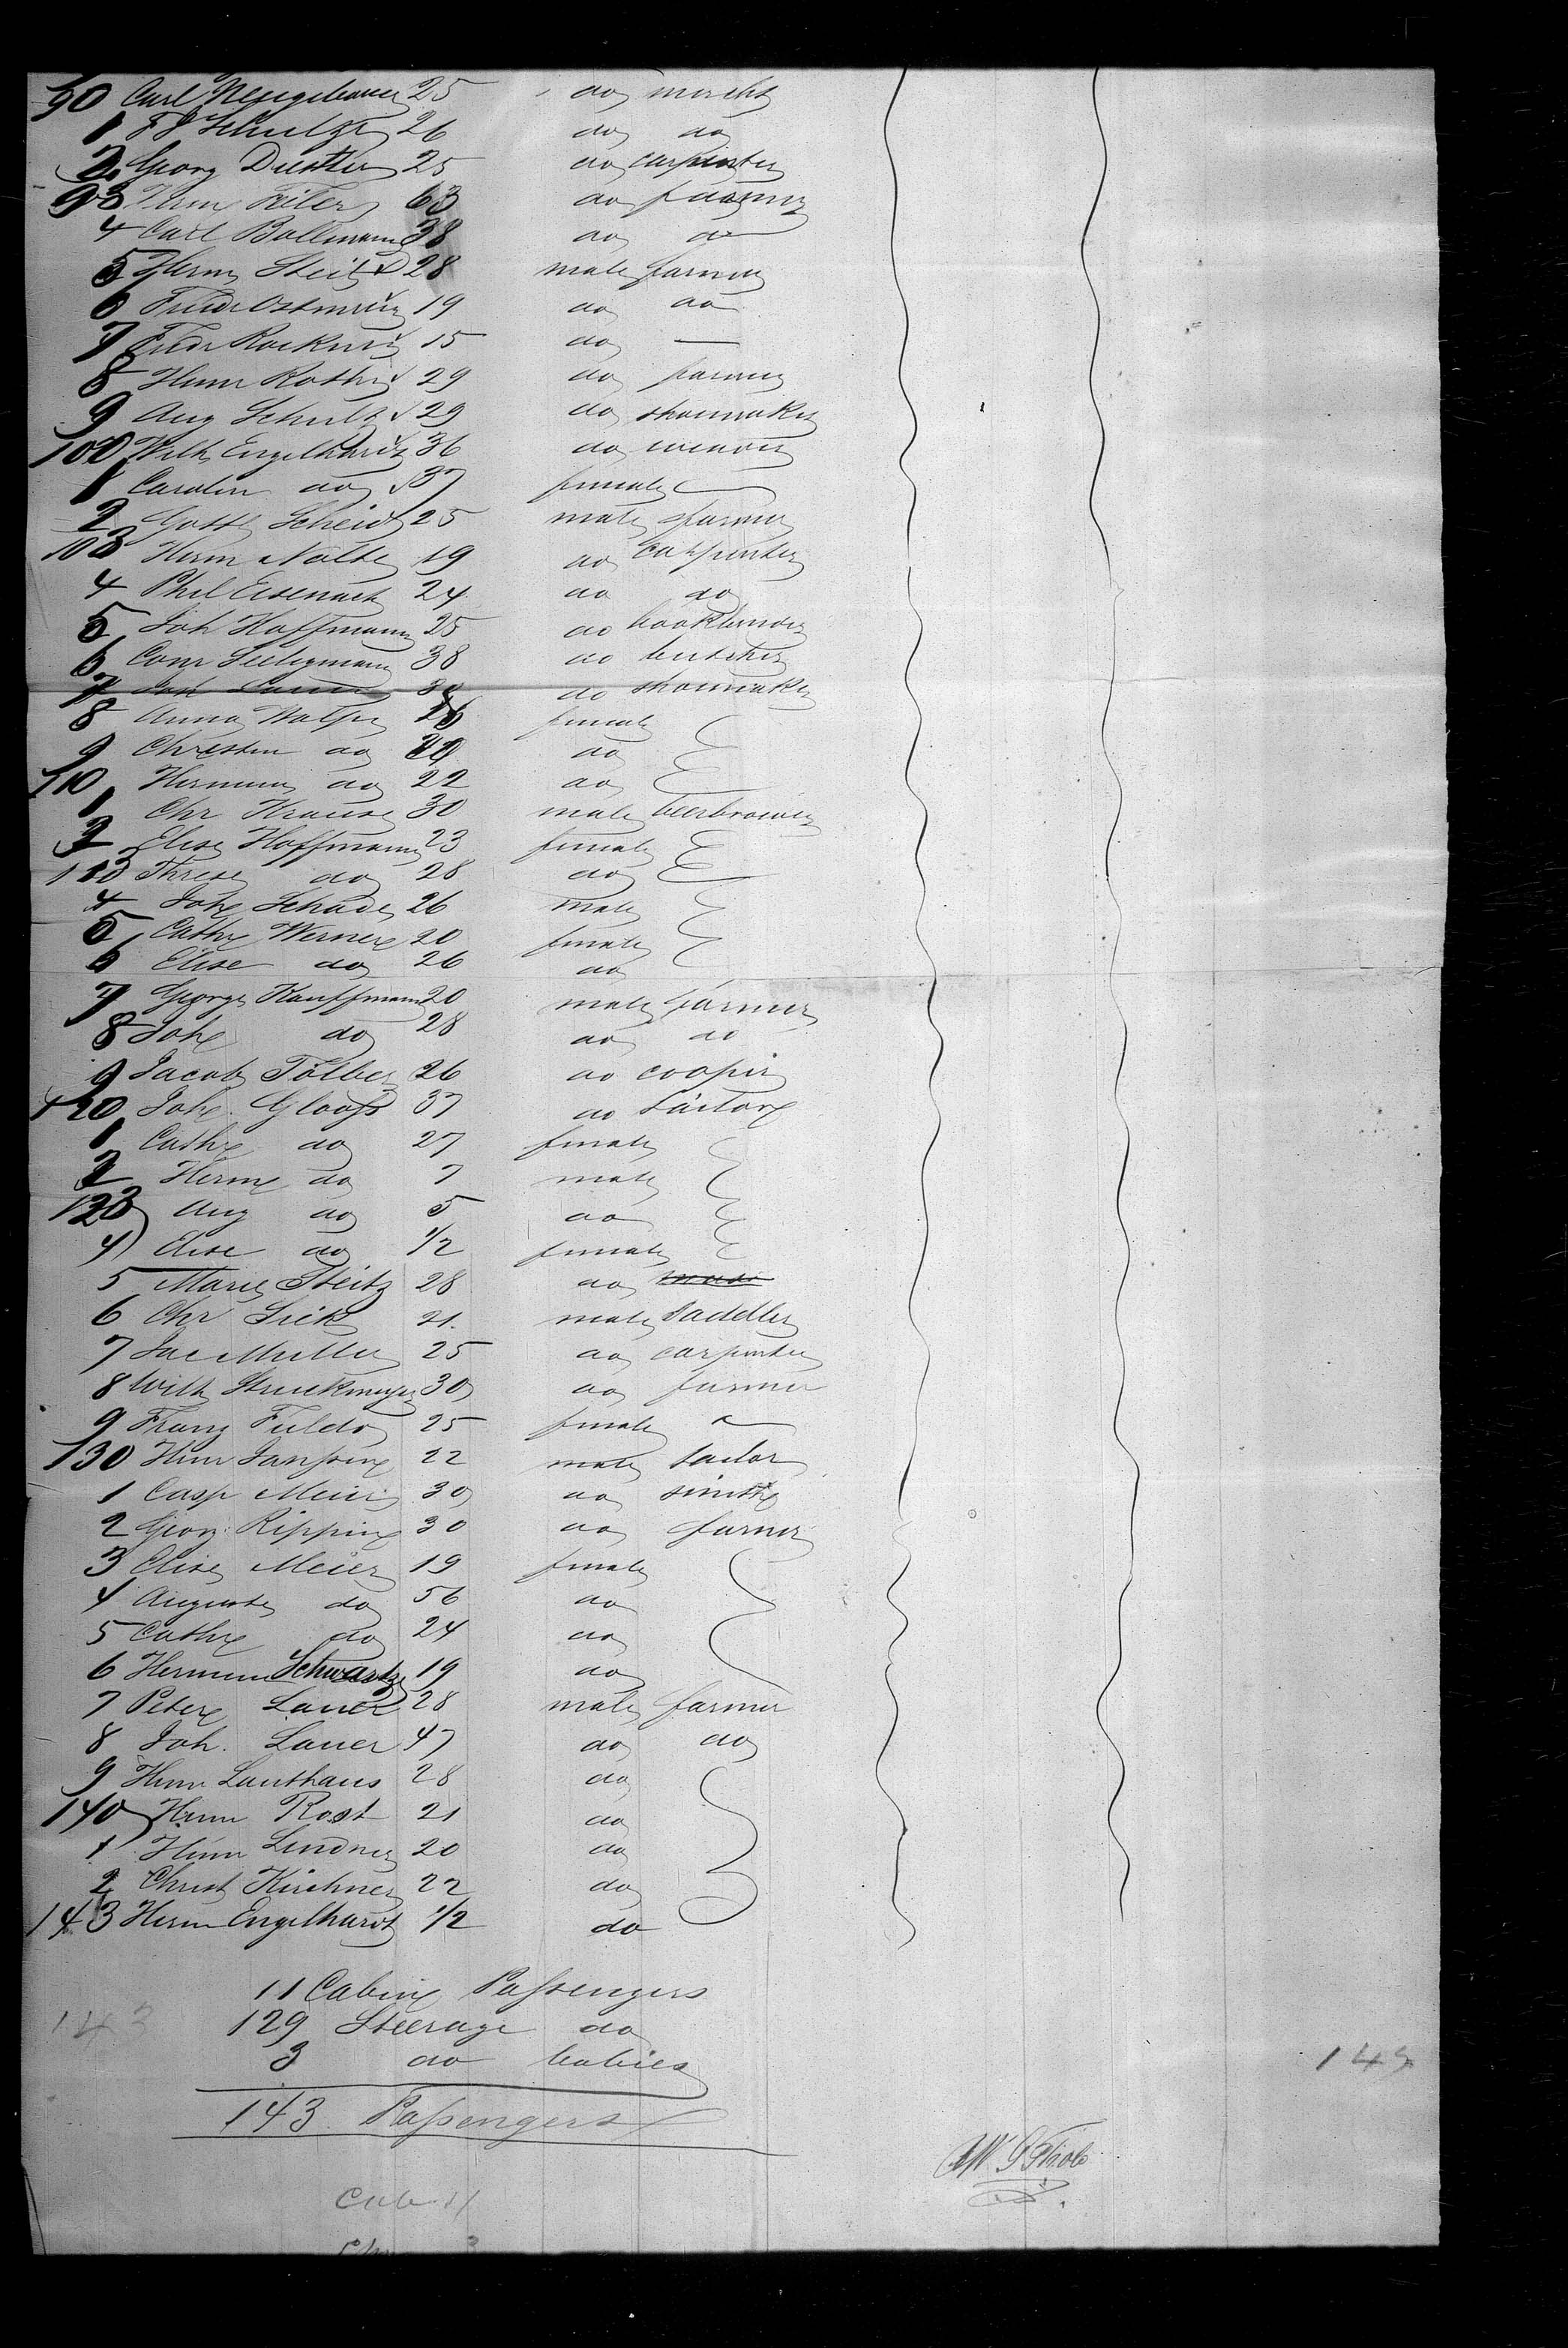 90 Carl Neugebauer 25 do mercht
1 F J Schultze 26 do do
2 Georg Duttler 25 do carpenter
93 Herm 63 do farmer
4 Carl Bollmann 38 do do
5 Herm Steitz 28 male farmer
6 Friedr Ostmeier 19 do do
7 Friedr 15 do —
8 Heinr Rothe 29 do farmer
9 Aug Schultz 29 do shoemaker
100 Wilh Engelhardt 36 do weaver
1 Carolin do 37 female
2 Gottl Scheidt 25 male farmer
103 Herm Nolte 19 do carpenter
4 Phil Eisenach 24 do do
5 Joh Hoffmann 25 do bookbinder
6 Conr Seeligmann 38 do butcher
7 Joh 30 do shoemaker
8 Anna 26 female
9 Christin do do
110 Hermine do 22 do
1 Chr Krause 30 male beerbrewer
2 Elise Hoffmann 23 female
113 Threse do 28 do
4 Joh Schade 26 male
5 Cath Werner 20 female
6 Elise do 26 do
7 George Kauffmann 20 male farmer
8 Joh do 28 do do
9 Jacob Tölber 26 do cooper
120 Joh. Glooss 37 do tailor
1 Cath do 27 female
2 Herm do 7 male
123 Aug do 5 do
4 Elise do 1/2 female
5 Marie Steitz 28 do
6 Chr Sick 21. male saddler
7 Jac Muller 25 do carpenter
8 Wilh Struckmeyer 30 do farmer
9 Franz Fulda 25 female
130 Heinr 22 male tailor
1 Casp Meier 30 do smith
2 Georg Ripping 30 do farmer
3 Elise Meier 19 female
4 Auguste do 56 do
5 Cath do 24 do
6 Hermine Schwartze 19 do
7 Peter Lauer 28 male farmer
8 Joh. Lauer 47 do do
9 Heinr Lanthaus 28 do
140 Heinr Rost 21 do
1 Heinr Lindner 20 do
2 Christ Kirchner 22 do
143 Herm Engelhardt 1/2 do
11 Cabin Passengers
143 129 Steerage do
3 do babies
143 Passengers
Cab 11